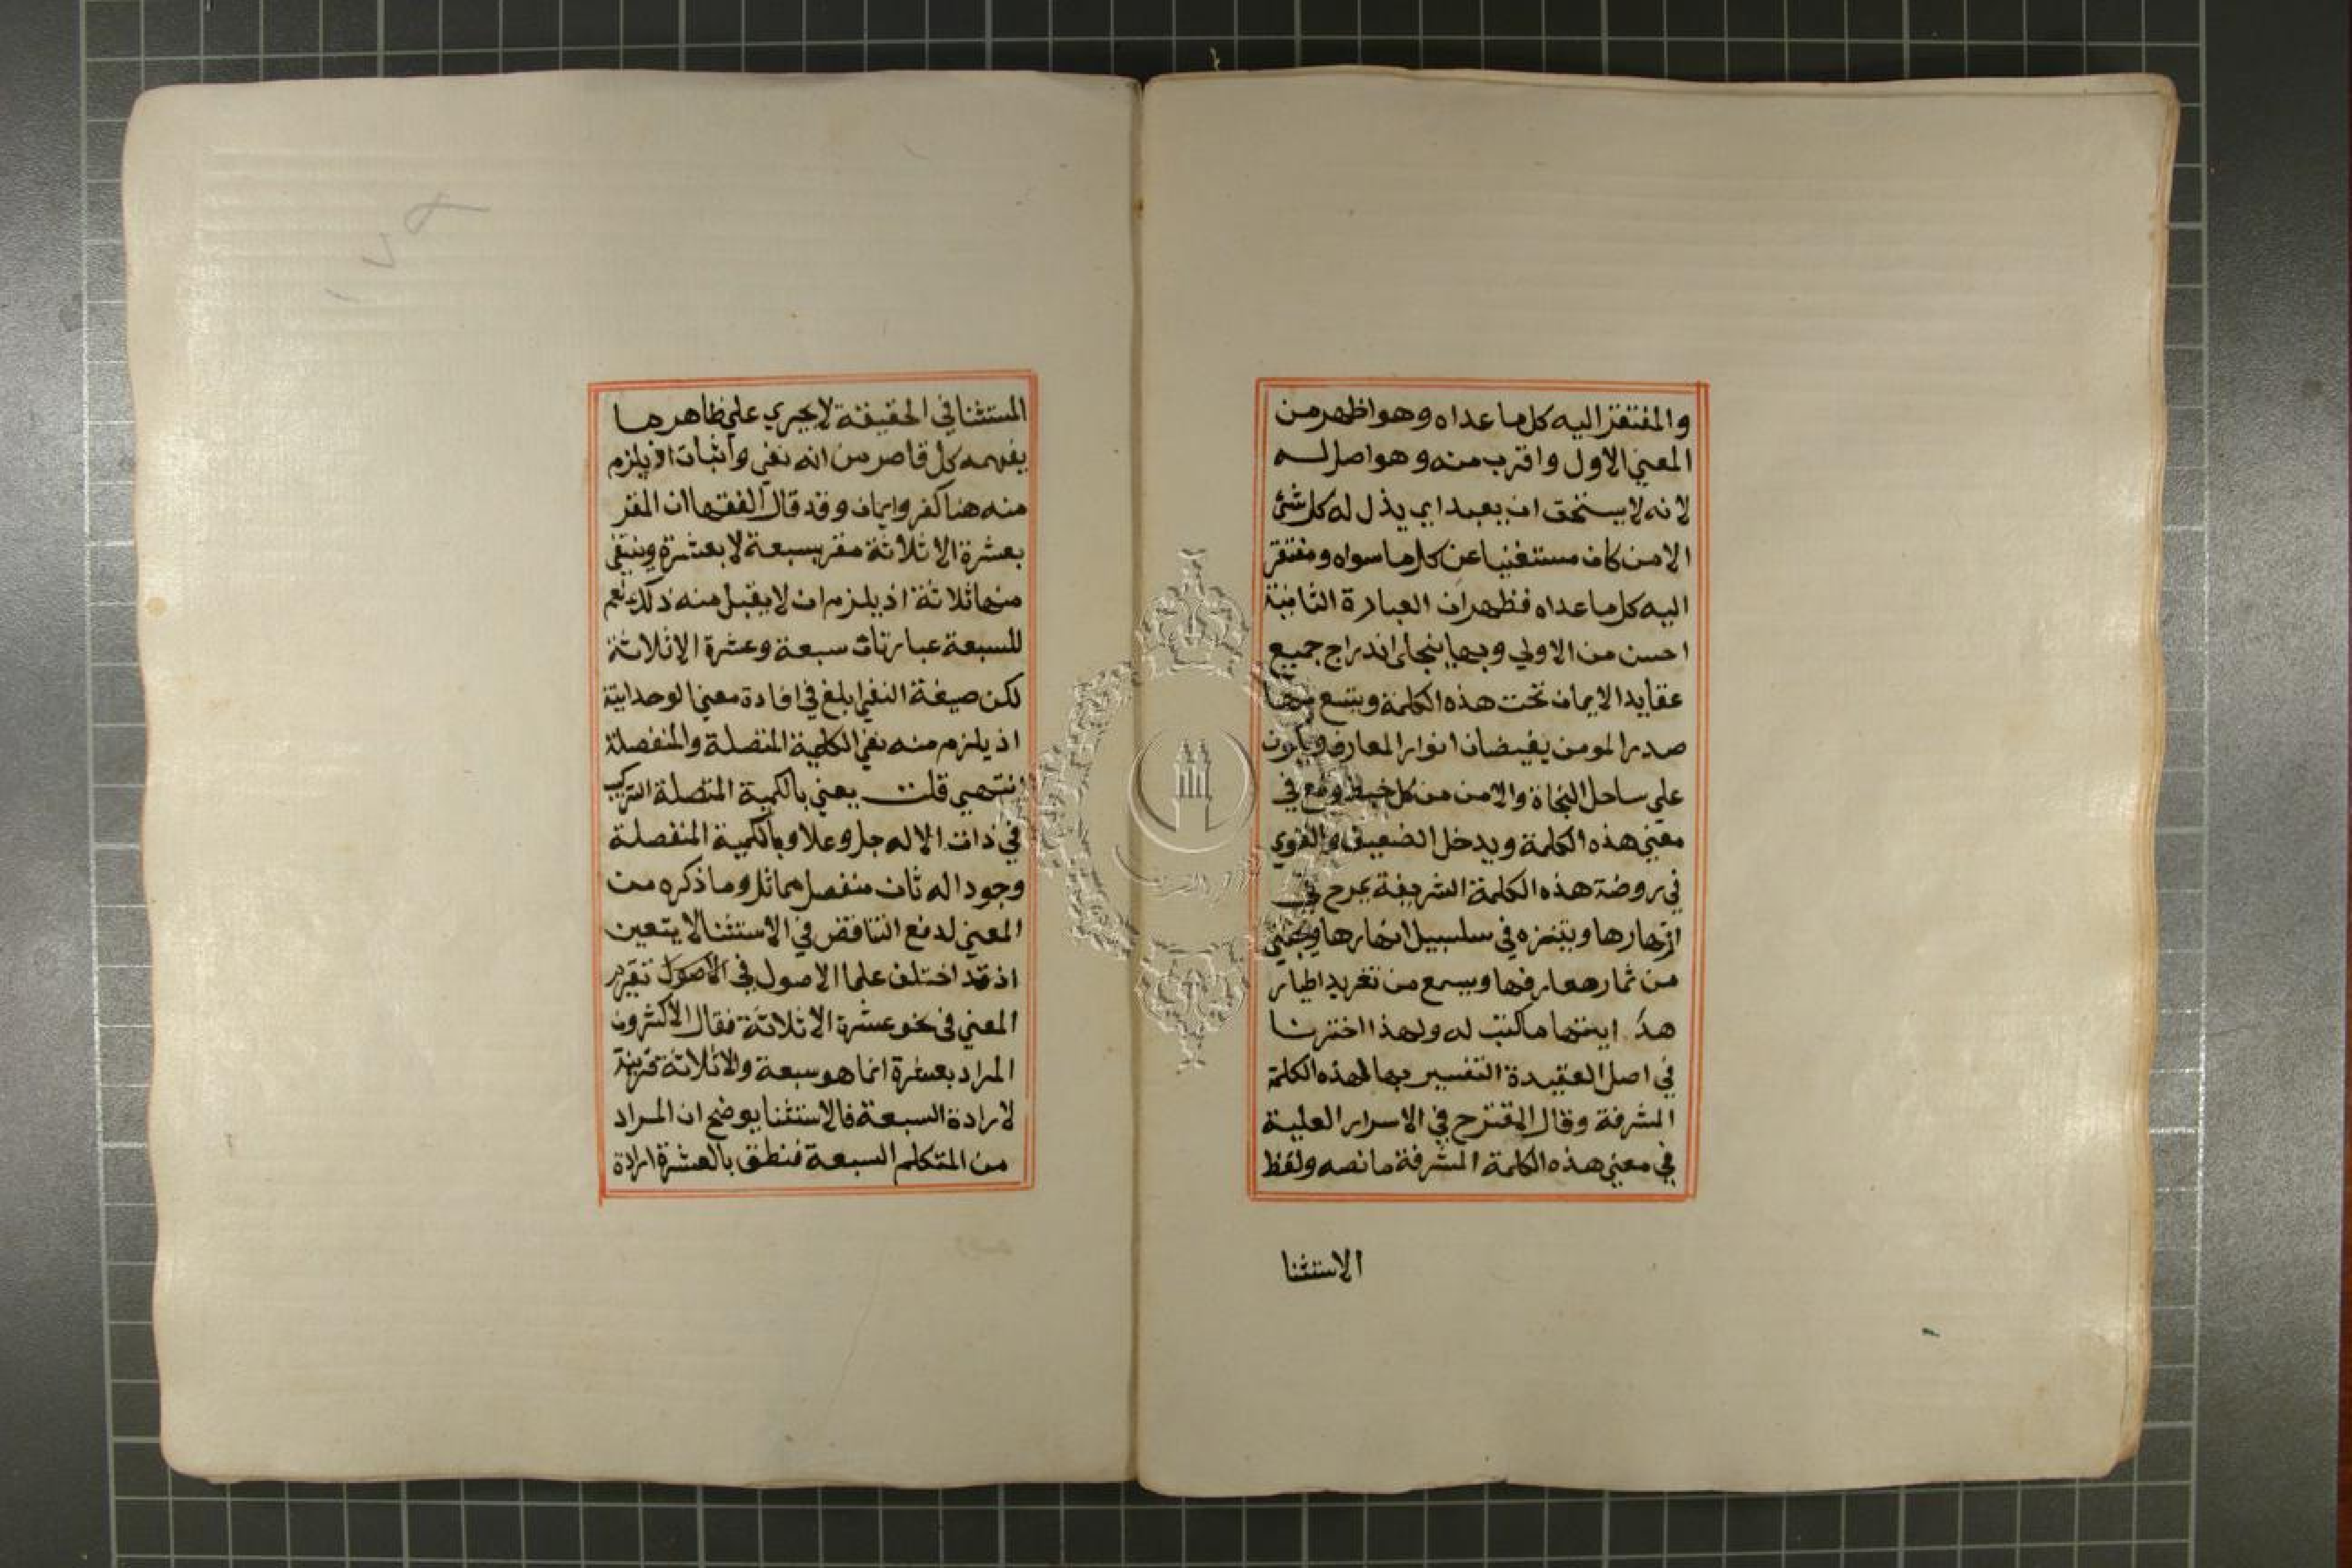 والمفتقر اليه كل ما عداه وهو اظهر من
المعني الاول واقرب منه وهو اصل له
لانه لا يستحق ان يعبد اي يذل له كل شئ
الا من كان مستغنيا عن كل ما سواه ومفتقر
اليه كل ما عداه فظهر ان العبارة الثانية
احسن من الاولي وبها ينجلي اندراج جميع
عقايد الايمان تحت هذه الكلمة ويتسع بها
صدر المومن يفيضان انوار المعارف ويكون
علي ساحل النجاة والامن من كل خبط وقع في
معني هذه الكلمة ويدخل الضعيف والقوي
في روضة هذه الكلمة الشريفة يمرح في
ازهارها ويتنزه في سلسبيل انهارها ويجتني
من ثمار معارفها ويسمع من تغريد اطيار
هدايتها ما كتب له ولهذا اخترنا
في اصل العقيدة التفسير بها لهذه الكلمة
المشرفة وقال المقترح في الاسرار العلية
في معني هذه الكلمة المشرفة ما نصه ولفظ
الاستثنا
المستثنا في الحقيقة لا يجري علي ظاهر ما
يفهمه كل قاصر من انه نفي واثبات اذ يلزم
منه هنا كفر وايمان وقد قال الفقها ان المقر
بعشرة الا ثلاثة مقر بسبعة لا بعشرة وينفي
منها ثلاثة اذ يلزم ان لا يقبل منه ذلك نعم
للسبعة عبارتان سبعة وعشرة الا ثلاثة
لكن صيغة النفي ابلغ في افادة معني الوحدانية
اذ يلزم منه نفي الكمية المتصلة والمنفصلة
انتهي قلت يعني بالكمية المتصلة التركيب
في ذات الاله جل وعلا وبالكمية المنفصلة
وجود اله ثان منفصل مماثل وما ذكره من
المعني لدفع التناقض في الاستثنا لا يتعين
اذ قد اختلف علما الاصول في الاصول تقرير
المعني في نحو عشرة الا ثلاثة فقال الاكثرون
المراد بعشرة انما هو سبعة والا ثلاثة قرينة
لارادة السبعة فالاستثنا يوضح ان المراد
من المتكلم السبعة فنطق بالعشرة ارادة